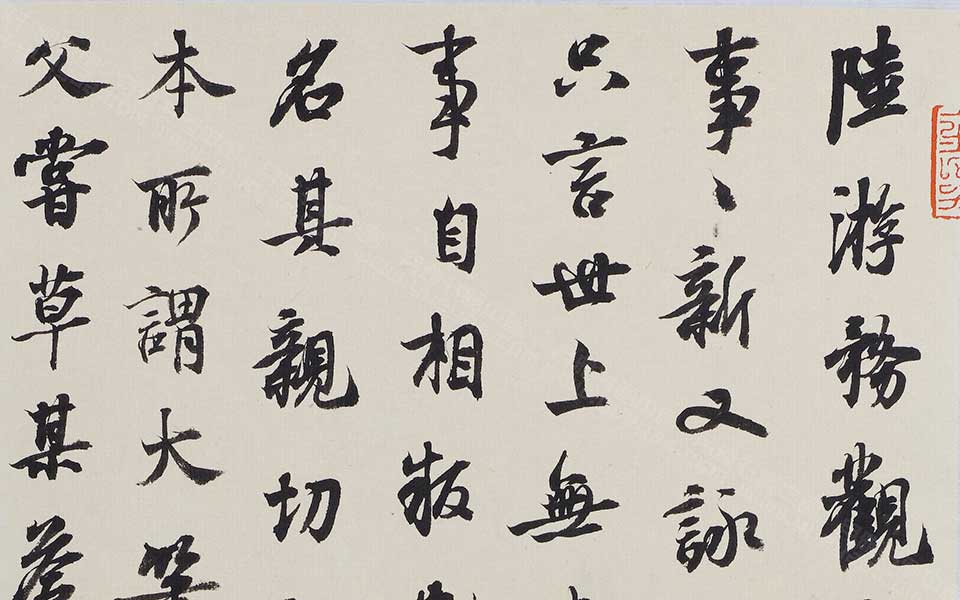 陸游務觀
事〻新又詠
只言世上無
事自相叛
名其親切
本所謂大
父嘗草某